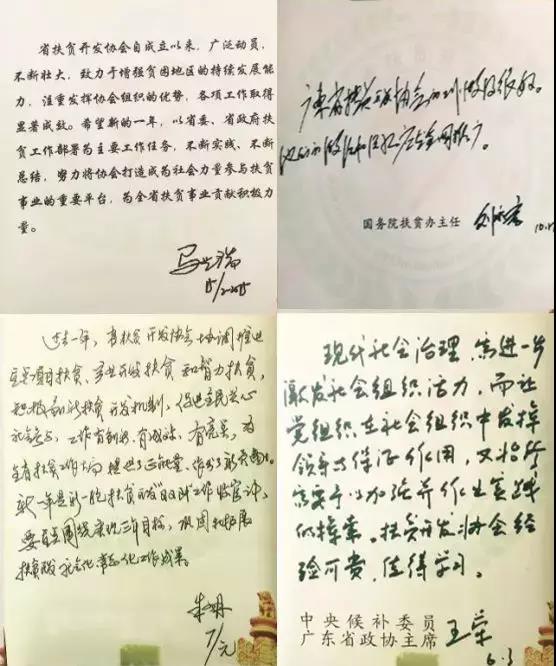 省扶贫开发协会自成立以来，广泛动员，
不断壮大，致力于增强贫困地区的持续发展能
力，注重发挥协会组织的优势，各项工作取得
显著成效。希望新的一年，以省委、省政府扶
贫工作部署为主要工作任务，不断实践、不断
总结，努力将协会打造成为社会力量参与扶贫
事业的重要平台，为全省扶贫事业贡献积极力
量。
马兴瑞
15/2-2015
广东省扶贫开发协会的培训做得很好。
他们的做法和经验应在全国推广。
国务院扶贫办主任 刘永富
过去一年，省扶贫开发协会协调推进
扶贫、产业开发扶贫和智力扶贫，
积极创新扶贫开发机制，促进全民关心
社会参与，工作有创新、有成效、有亮点，为
全省扶贫工作大局提供了正能量，作出了新贡献。
新一年是新一轮扶贫开发"双到"工作收官之年，
要围绕实现三年目标，巩固和拓展
扶贫社会化、常态化工作成果。
朱小丹
7/元
现代社会治理，需进一步
激发社会组织活力，而让
党组织在社会组织中发挥
领导与保证作用，又
需要予以加强并作出实践
的探索。扶贫开发协会经
验可贵，值得学习。
中央候补委员
广东省政协主席 王荣
6.3